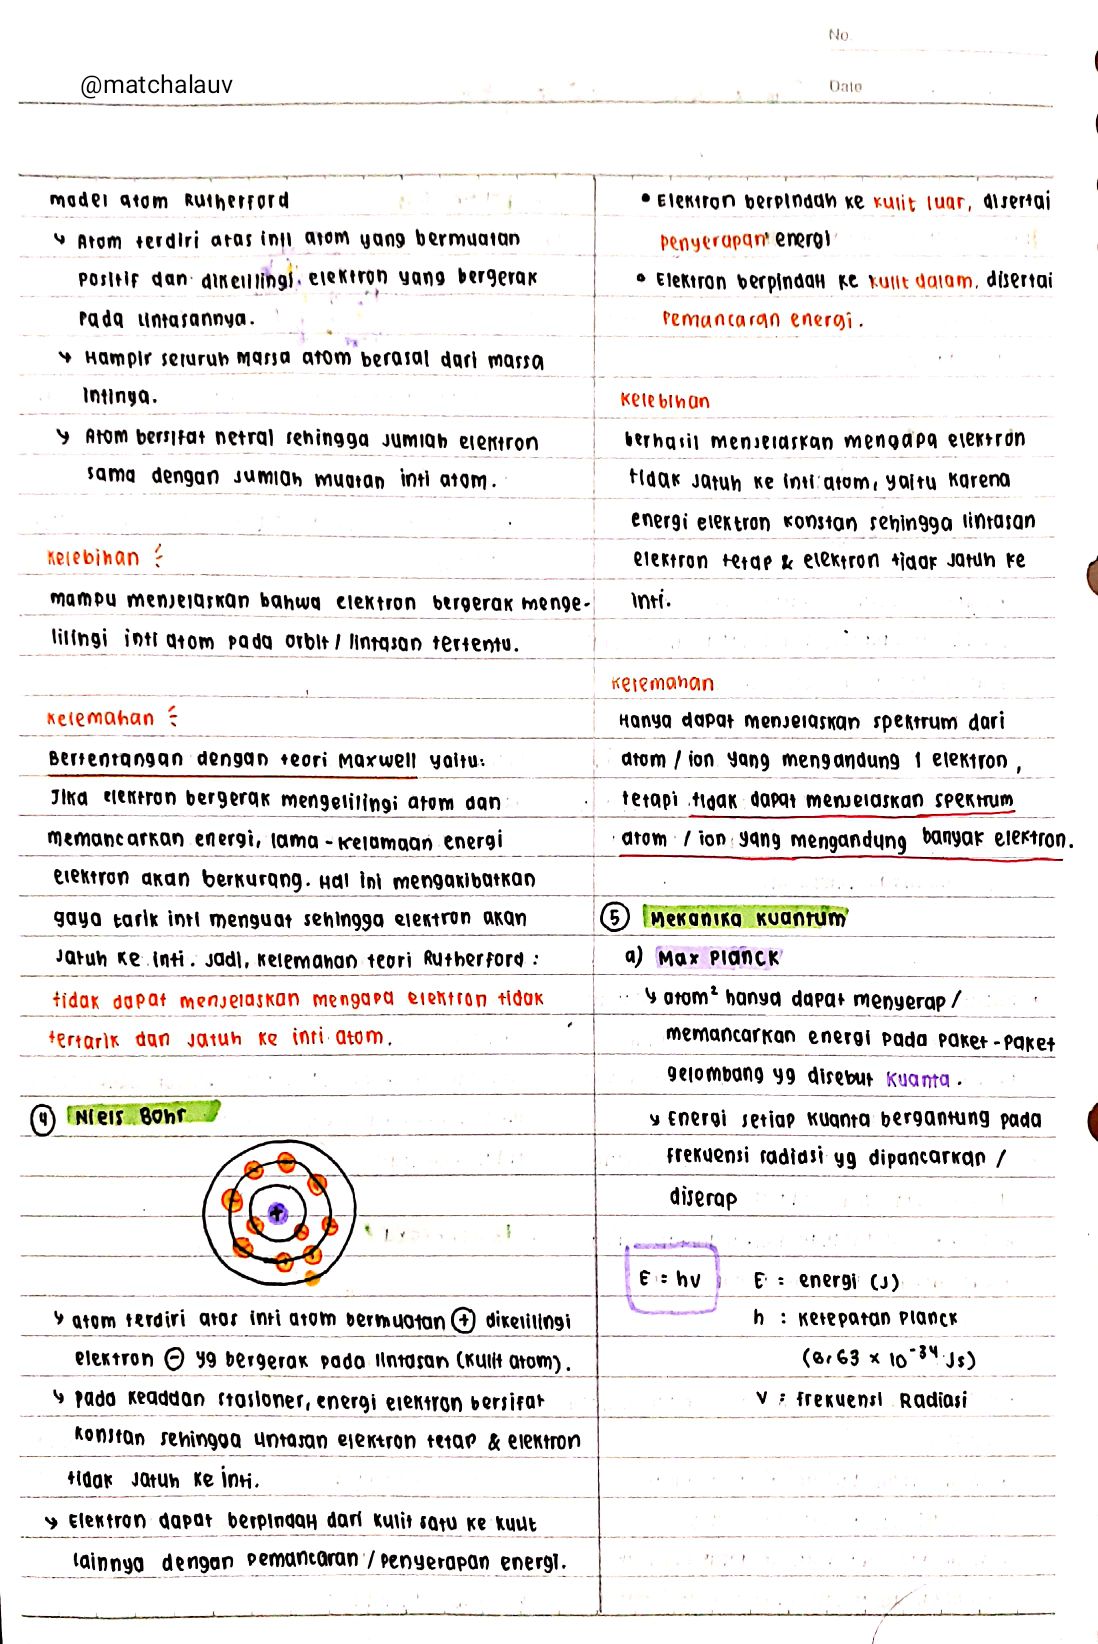 No
@matchalauv
Date
model atom Rutherford
↳ Atom terdiri atas inti atom yang bermuatan
positif dan dikelilingi elektron yang bergerak
pada lintasannya.
↳ Hampir seluruh massa atom berasal dari massa
intinya.
↳ Atom bersifat netral sehingga jumlah elektron
sama dengan jumlah muatan inti atom.
Kelebihan
mampu menjelaskan bahwa elektron bergerak menge-
lilingi inti atom pada orbit / lintasan tertentu.
Kelemahan
Bertentangan dengan teori Maxwell yaitu:
Jika elektron bergerak mengelilingi atom dan
memancarkan energi, lama-kelamaan energi
elektron akan berkurang. Hal ini mengakibatkan
gaya tarik inti menguat sehingga elektron akan
jatuh ke inti. Jadi, kelemahan teori Rutherford :
tidak dapat menjelaskan mengapa elektron tidak
tertarik dan jatuh ke inti atom.
④ Niels Bohr
+
↳ atom terdiri atas inti atom bermuatan ⊕ dikelilingi
elektron ⊖ yg bergerak pada lintasan (kulit atom).
↳ pada keadaan stasioner, energi elektron bersifat
konstan sehingga lintasan elektron tetap & elektron
tidak jatuh ke inti.
↳ Elektron dapat berpindah dari kulit satu ke kulit
lainnya dengan pemancaran / penyerapan energi.
• Elektron berpindah ke kulit luar, disertai
penyerapan energi
• Elektron berpindah ke kulit dalam, disertai
pemancaran energi.
Kelebihan
berhasil menjelaskan mengapa elektron
tidak jatuh ke inti atom, yaitu karena
energi elektron konstan sehingga lintasan
elektron tetap & elektron tidak jatuh ke
inti.
Kelemahan
Hanya dapat menjelaskan spektrum dari
atom / ion yang mengandung 1 elektron,
tetapi tidak dapat menjelaskan spektrum
atom / ion yang mengandung banyak elektron.
⑤ Mekanika Kuantum
a) Max Planck
↳ atom² hanya dapat menyerap /
memancarkan energi pada paket-paket
gelombang yg disebut kuanta.
↳ Energi setiap kuanta bergantung pada
frekuensi radiasi yg dipancarkan /
diserap
E = hv E : energi (J)
h : ketepatan Planck
(6,63 × 10⁻³⁴ Js)
v : frekuensi Radiasi